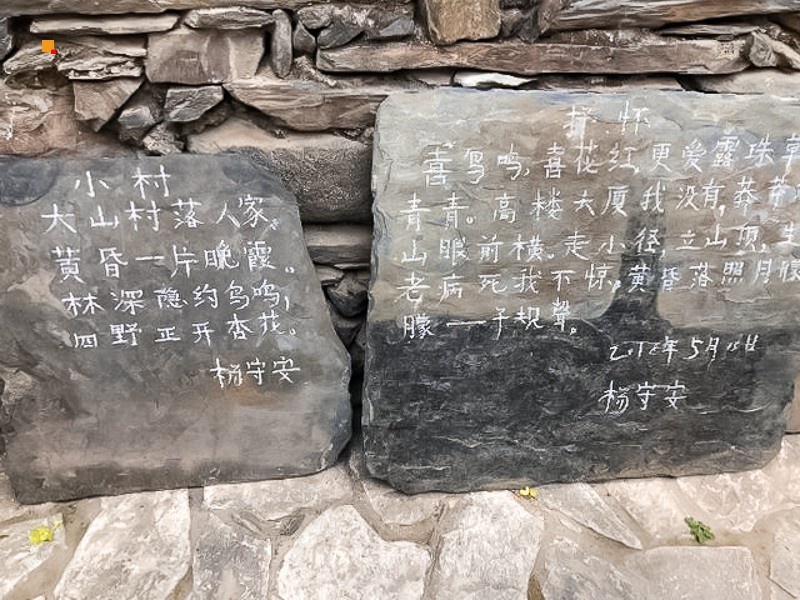 小村
大山村落人家。
黄昏一片晚霞。
林深隐约鸟鸣,
四野正开杏花。
杨守安
怀
喜鸟鸣,喜花红,更爱露珠草
青青。高楼大厦我没有,莽莽
山眼前横。走小径,立山顶,生
老病死我不惊。黄昏落照月朦
朦一子规聲。
5月
杨守安